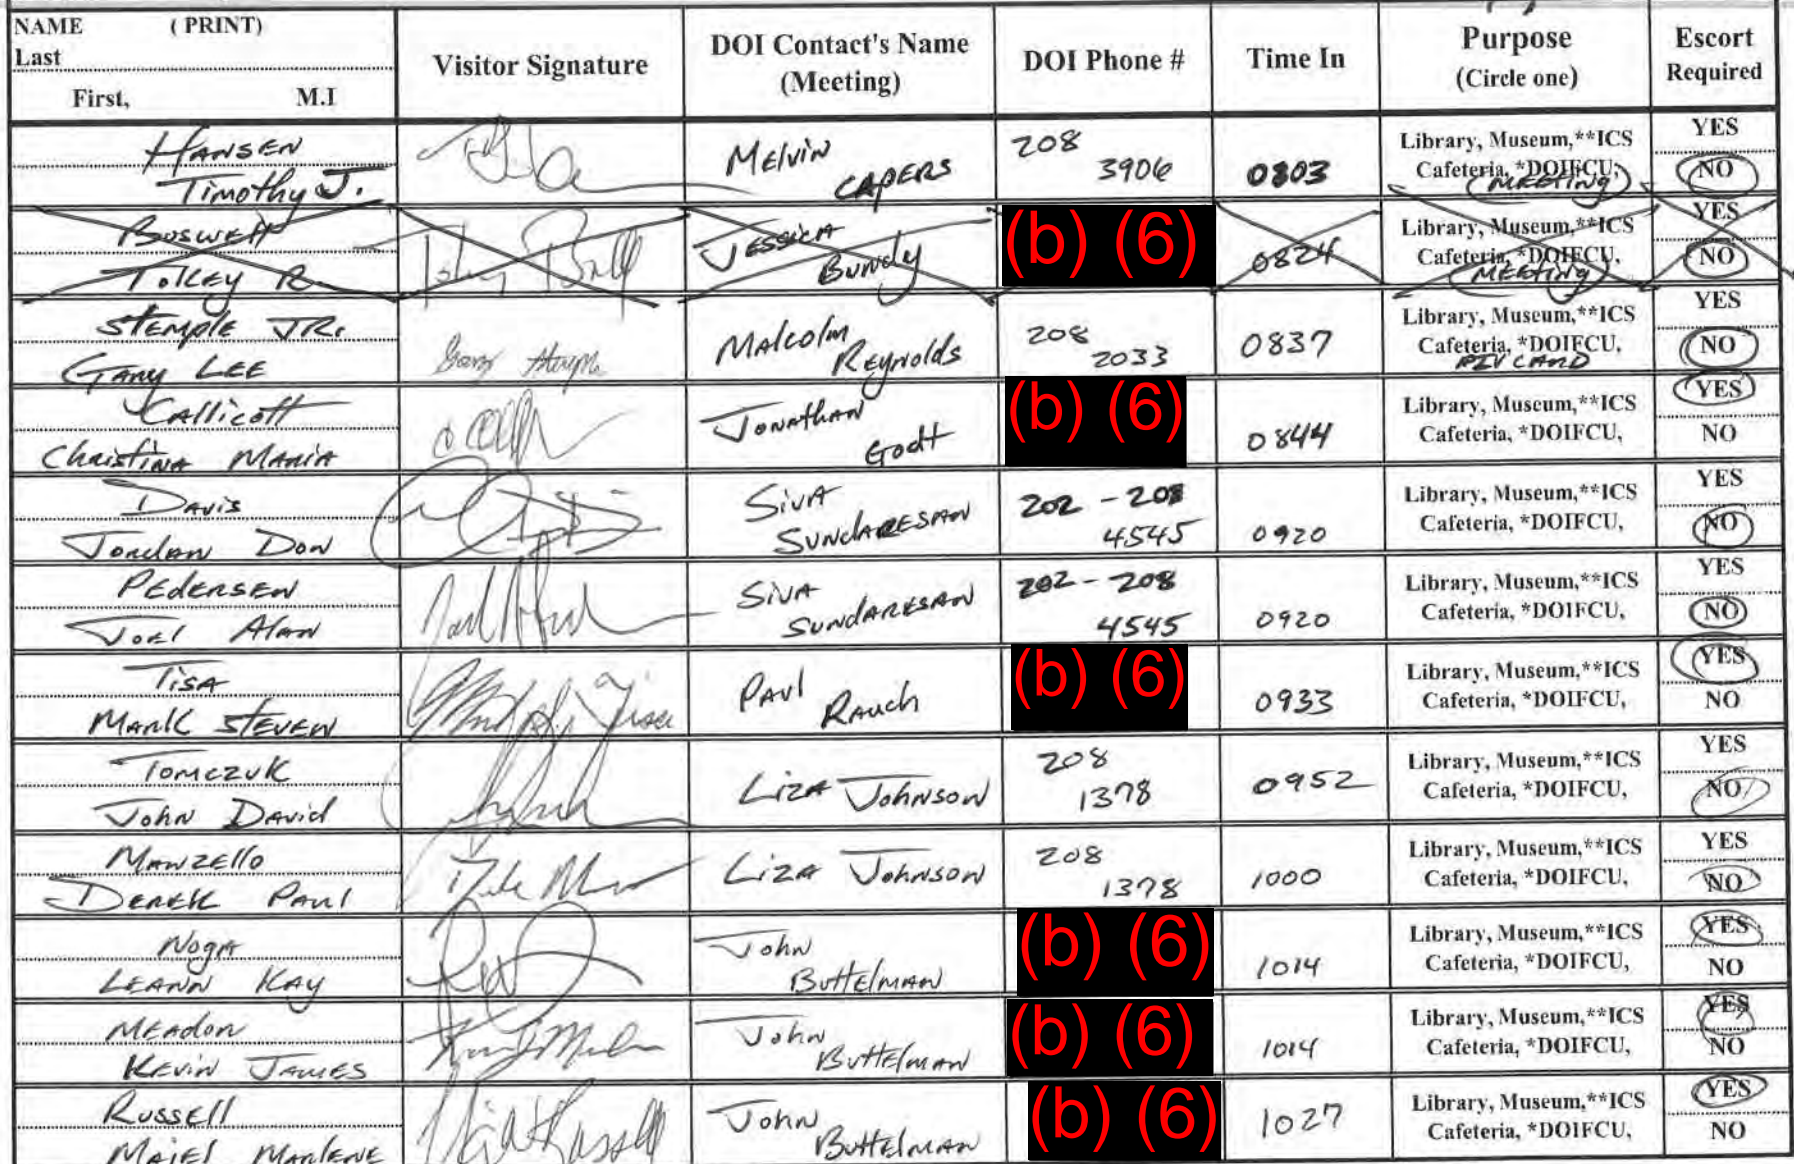 NAME ( PRINT)
Last
First, M.I
Visitor Signature
DOI Contact's Name
(Meeting)
DOI Phone #
Time In
Purpose
(Circle one)
Escort
Required
HANSEN
Timothy J.
Melvin
CAPERS
208
3906
0803
Library, Museum,**ICS
Cafeteria, *DOIFCU,
MEETING
YES
NO
Boswell
Tolley R
Jessica
Bundy
(b) (6)
0824
Library, Museum,**ICS
Cafeteria, *DOIFCU,
MEETING
YES
NO
Stemple JR.
Gary LEE
Malcolm
Reynolds
208
2033
0837
Library, Museum,**ICS
Cafeteria, *DOIFCU,
PIV CARD
YES
NO
Callicott
Christina Maria
Jonathan
Godt
(b) (6)
0844
Library, Museum,**ICS
Cafeteria, *DOIFCU,
YES
NO
Davis
Jordan Don
Siva
Sundaresan
202 - 208
4545
0920
Library, Museum,**ICS
Cafeteria, *DOIFCU,
YES
NO
Pedersen
Joel Alan
Siva
Sundaresan
202 - 208
4545
0920
Library, Museum,**ICS
Cafeteria, *DOIFCU,
YES
NO
Tisa
Mark Steven
Paul
Rauch
(b) (6)
0933
Library, Museum,**ICS
Cafeteria, *DOIFCU,
YES
NO
Tomczuk
John David
Liza Johnson
208
1378
0952
Library, Museum,**ICS
Cafeteria, *DOIFCU,
YES
NO
Manzello
Derek Paul
Liza Johnson
208
1378
1000
Library, Museum,**ICS
Cafeteria, *DOIFCU,
YES
NO
Noga
Leann Kay
John
Buttelman
(b) (6)
1014
Library, Museum,**ICS
Cafeteria, *DOIFCU,
YES
NO
Meadon
Kevin James
John
Buttelman
(b) (6)
1014
Library, Museum,**ICS
Cafeteria, *DOIFCU,
YES
NO
Russell
Marlene
John
Buttelman
(b) (6)
1027
Library, Museum,**ICS
Cafeteria, *DOIFCU,
YES
NO